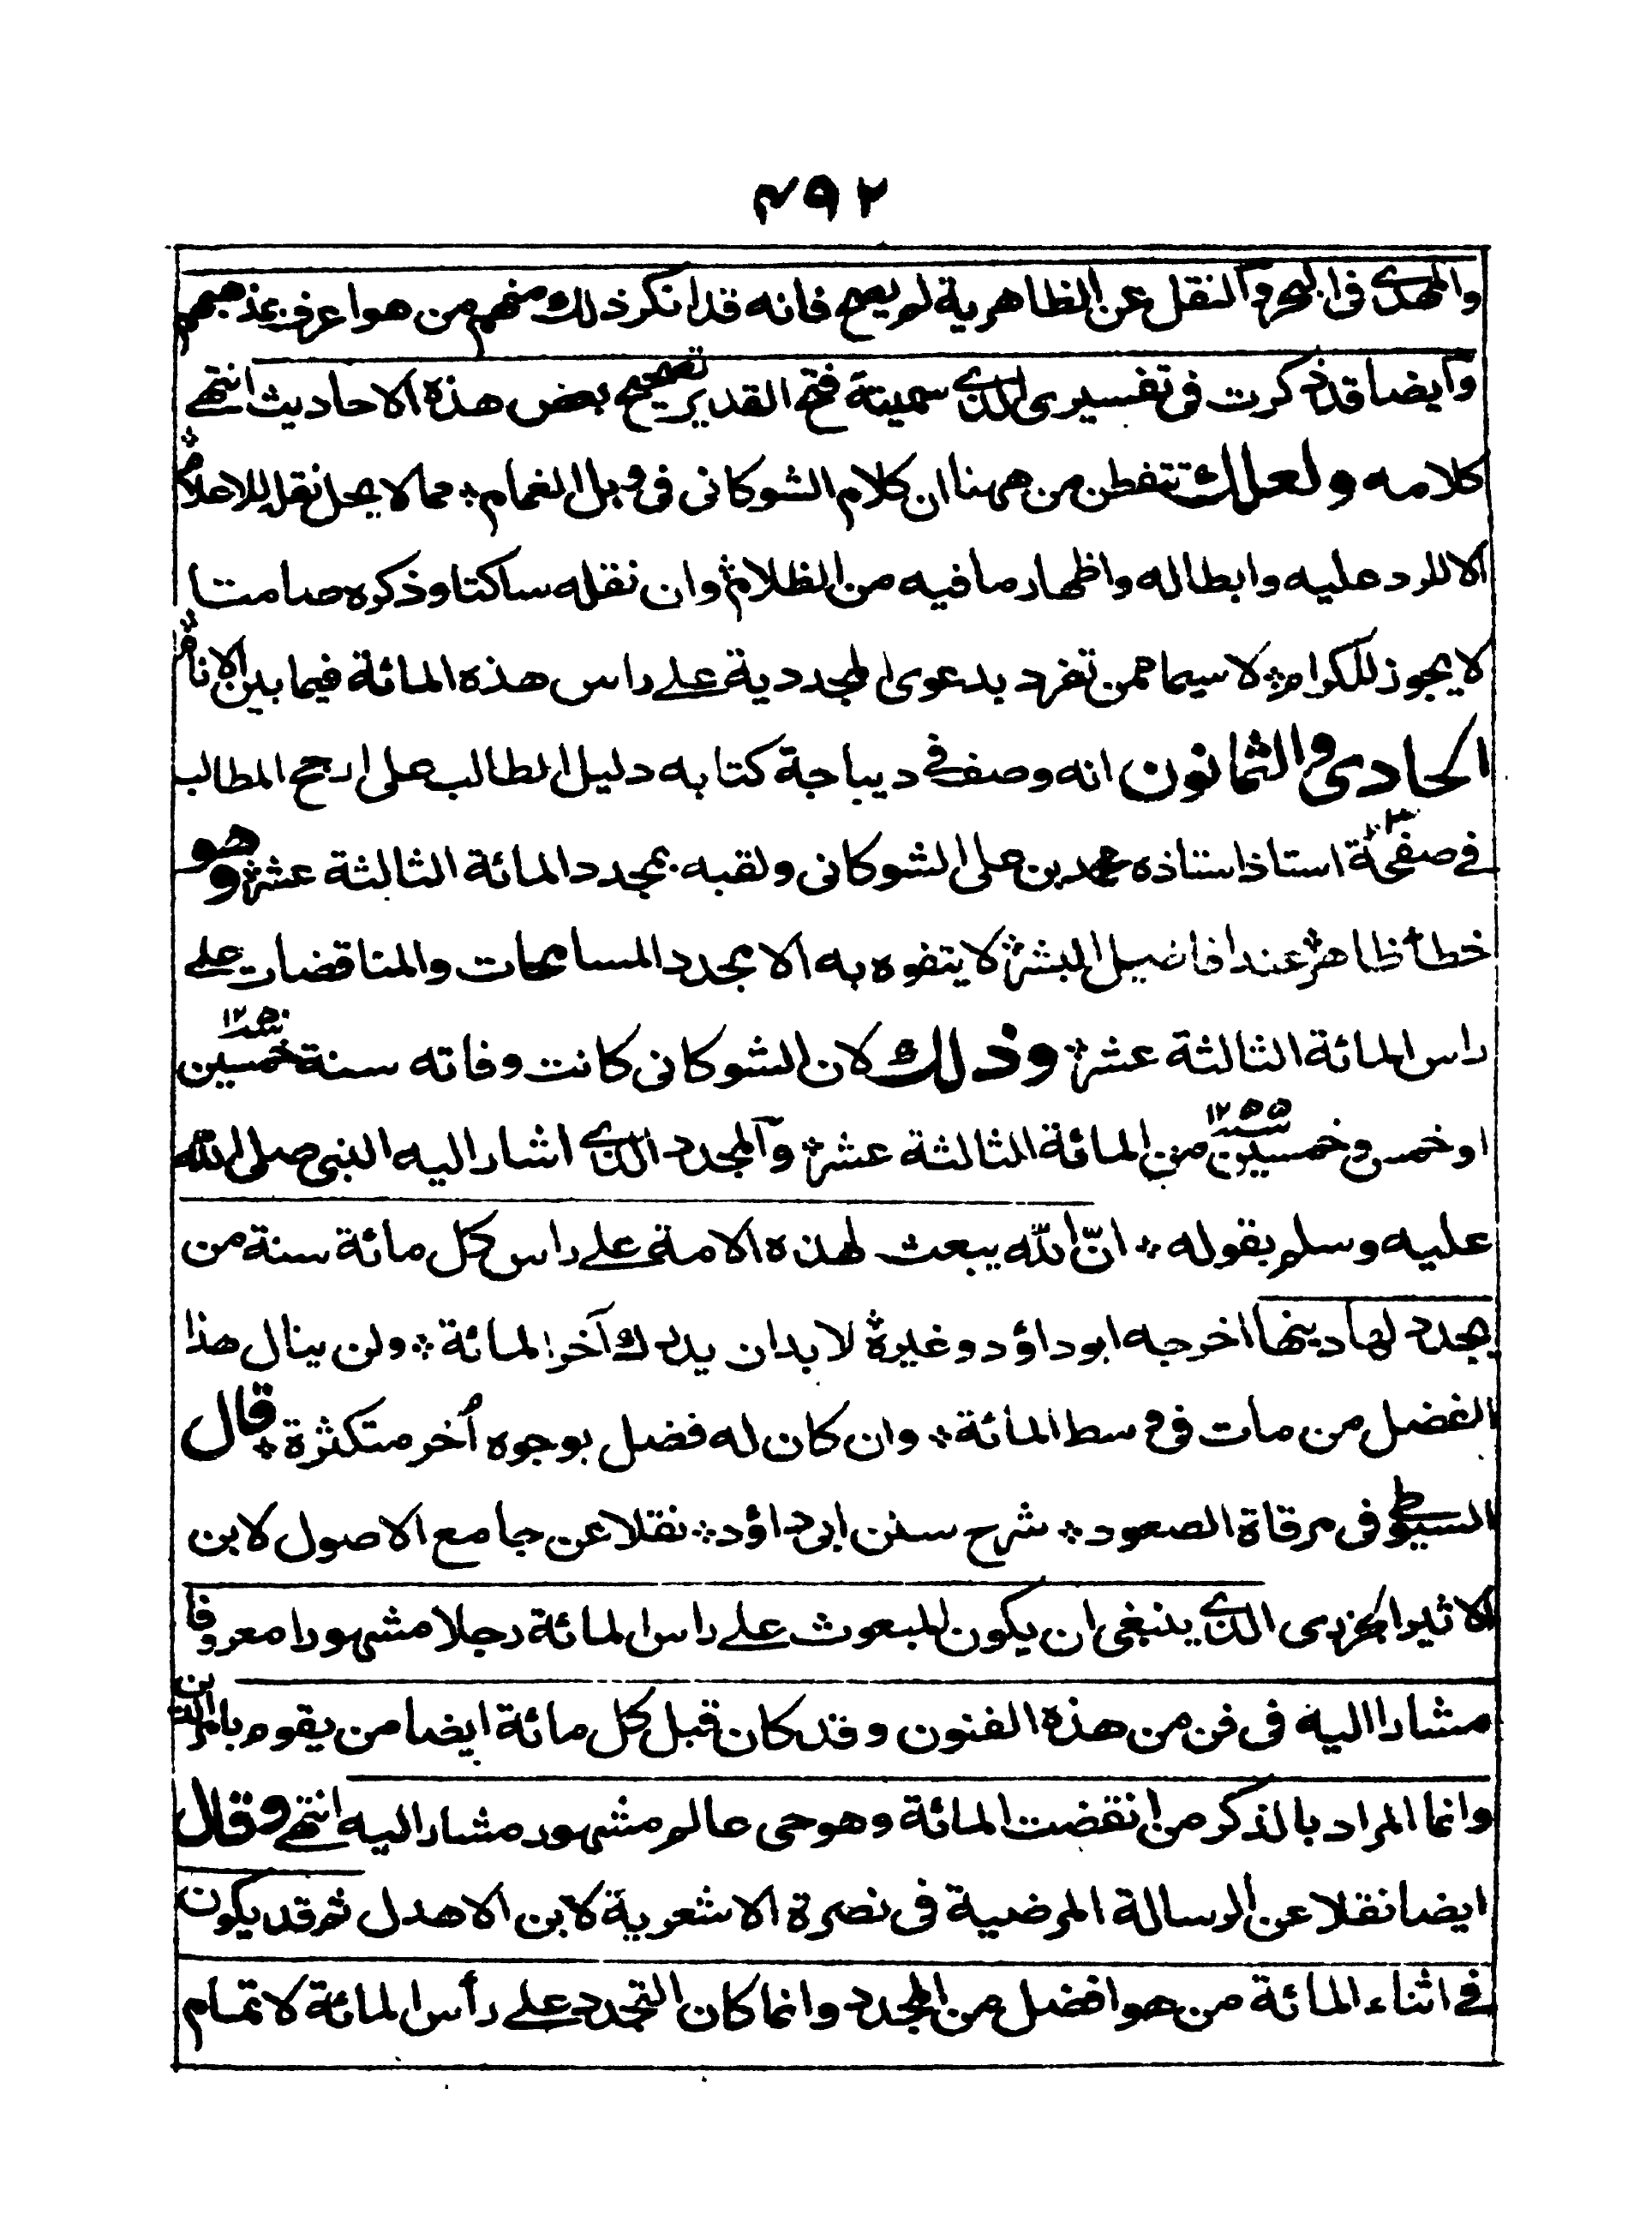 ٤٩٢
والمهدى فى البحر والنقل عن الظاهرية لم يصح فانه قد انكر ذلك منهم من هو اعرف بمذهبهم
وايضا قد ذكرت فى تفسيرى الذى سميته فتح القدير تصحيح بعض هذه الاحاديث انتهى
كلامه ولعلك تتفطن من ههنا ان كلام الشوكانى فى وبل الغمام ۞ مما لا يحل نقله للاعلام ۞
الا للرد عليه وابطاله واظهار ما فيه من الظلام ۞ وان نقله ساكتا وذكره صامتا
لا يجوز للكرام ۞ لا سيما ممن تفرد بدعوى المجددية على راس هذه المائة فيما بين الانام ۞
الحادى والثمانون انه وصف فى ديباجة كتابه دليل الطالب على ارجح المطالب
فى صفحة ٣ استاذ استاذه محمد بن على الشوكانى ولقبه بمجدد المائة الثالثة عشر ۞ وهو
خطأ ظاهر ۞ عند افاضل البشر ۞ لا يتفوه به الا مجدد المسامحات والمناقضات على
راس المائة الثالثة عشر ۞ وذلك لان الشوكانى كانت وفاته سنة خمسين ١٢٥٠
او خمس وخمسين ١٢٥٥ من المائة الثالثة عشر ۞ والمجدد الذى اشار اليه النبى صلى الله
عليه وسلم بقوله ۞ انّ الله يبعث لهذه الامة على راس كل مائة سنة من
يجدد لها دينها اخرجه ابو داؤد وغيره ۞ لا بد ان يدرك آخر المائة ۞ ولن ينال هذا
الفضل من مات فى وسط المائة ۞ وان كان له فضل بوجوه أخر متكثرة ۞ قال
السيوطى فى مرقاة الصعود ۞ شرح سنن ابى داؤد ۞ نقلا عن جامع الاصول لابن
الاثير الجزرى الذى ينبغى ان يكون المبعوث على راس المائة رجلا مشهورا معروفا
مشارا اليه فى فن من هذه الفنون وقد كان قبل كل مائة ايضا من يقوم بامر الدين
وانما المراد بالذكر من انقضت المائة وهو حى عالم مشهور مشار اليه انتهى وقال
ايضا نقلا عن الرسالة المرضية فى نصرة الاشعرية لابن الاهدل ثم قد يكون
فى اثناء المائة من هو افضل من المجدد وانما كان التجدد على رأس المائة لا تمام